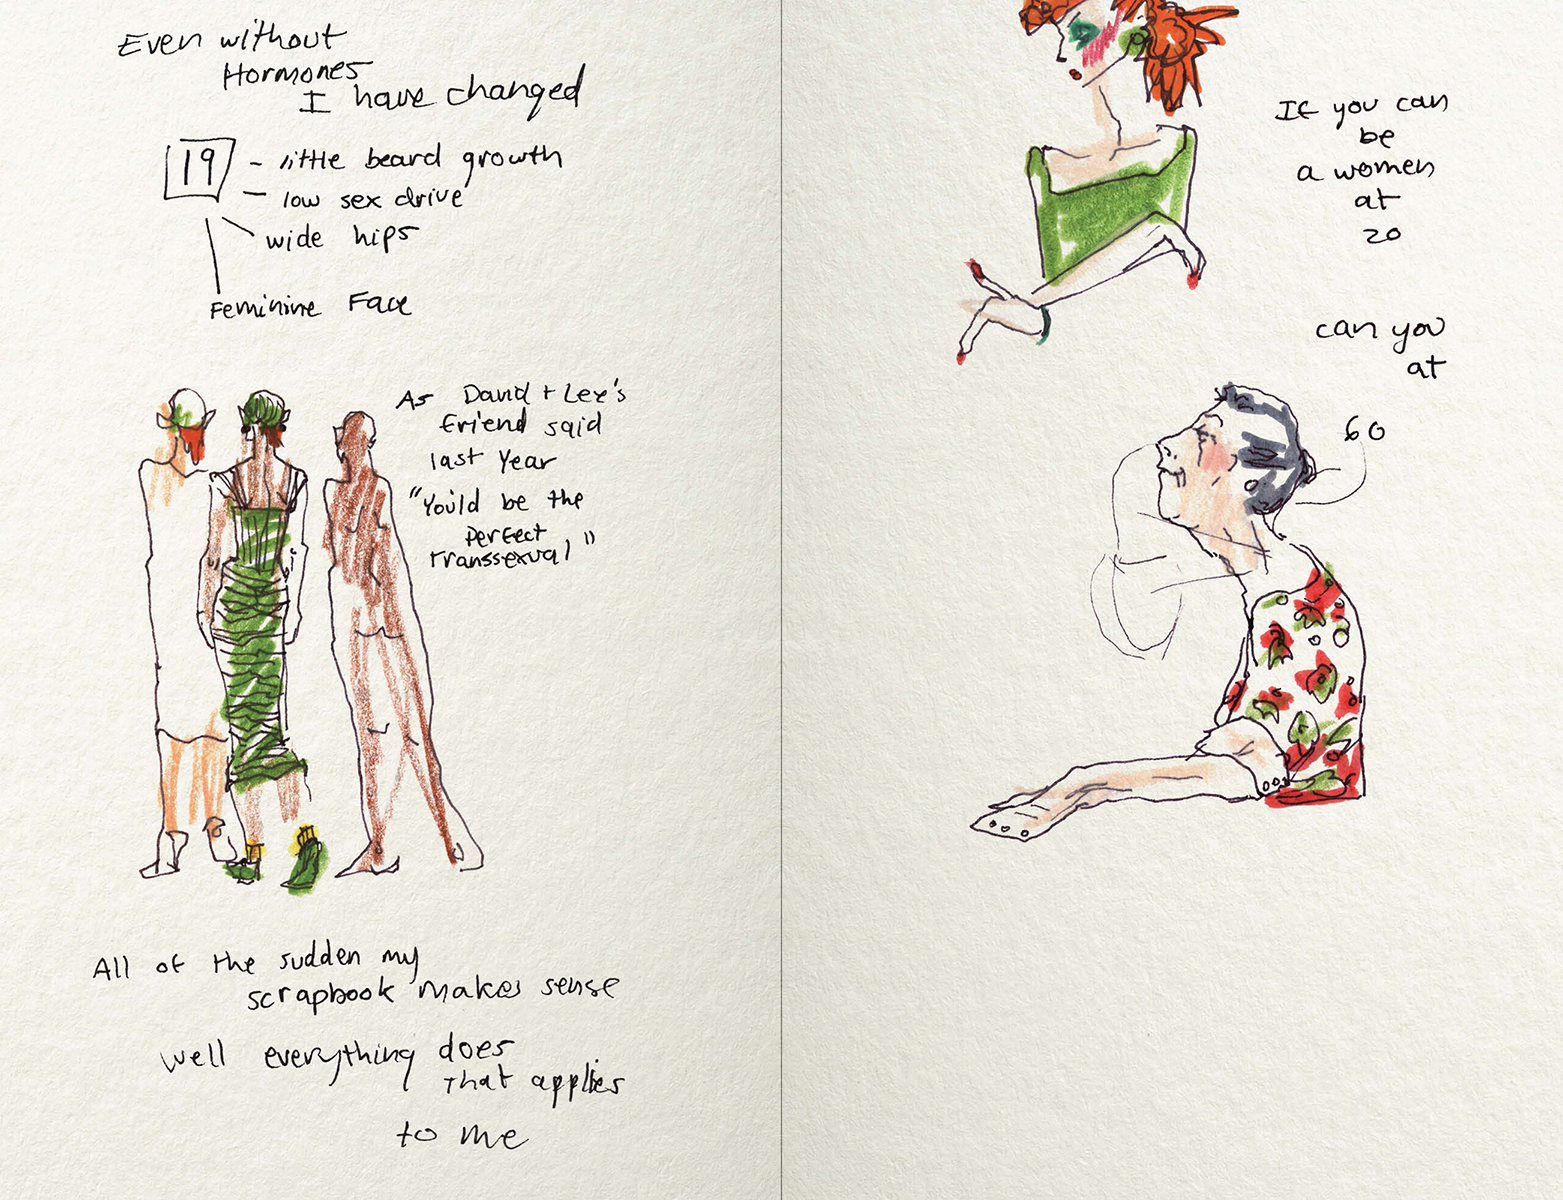 Even without
Hormones
I have changed
19
- little beard growth
- low sex drive
wide hips
Feminine Face
As David + Lee's
friend said
last year
"You'd be the
perfect
transsexual"
All of the sudden my
scrapbook makes sense
well everything does
that applies
to me
If you can
be
a women
at
20
can you
at
60